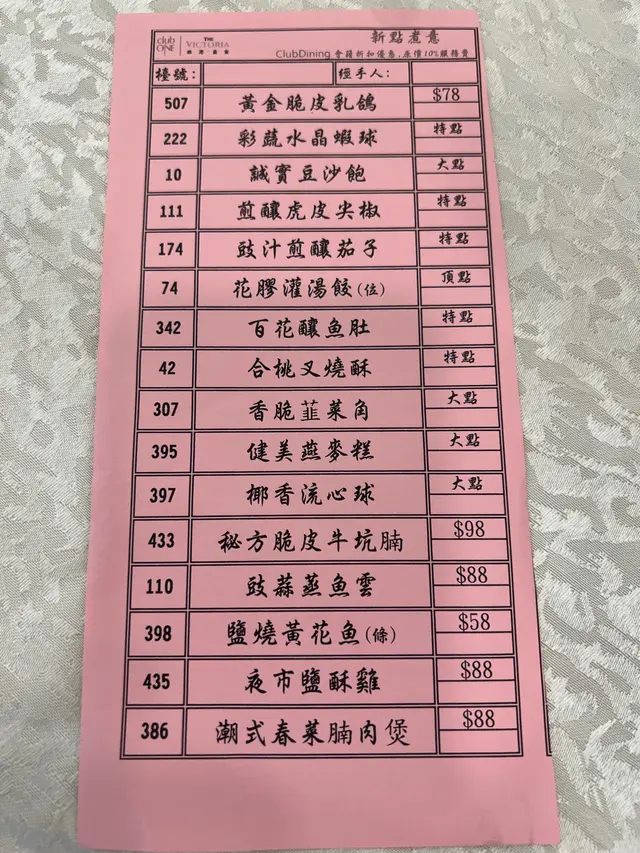 club ONE THE VICTORIA 維港·薈宴 新點煮意
ClubDining 會籍折扣優惠,原價10%服務費
檯號: 經手人:
507 黃金脆皮乳鴿 $78
222 彩蔬水晶蝦球 特點
10 誠實豆沙飽 大點
111 煎釀虎皮尖椒 特點
174 豉汁煎釀茄子 特點
74 花膠灌湯餃(位) 頂點
342 百花釀魚肚 特點
42 合桃叉燒酥 特點
307 香脆韮菜角 大點
395 健美燕麥糕 大點
397 椰香流心球 大點
433 秘方脆皮牛坑腩 $98
110 豉蒜蒸魚雲 $88
398 鹽燒黃花魚(條) $58
435 夜市鹽酥雞 $88
386 潮式春菜腩肉煲 $88